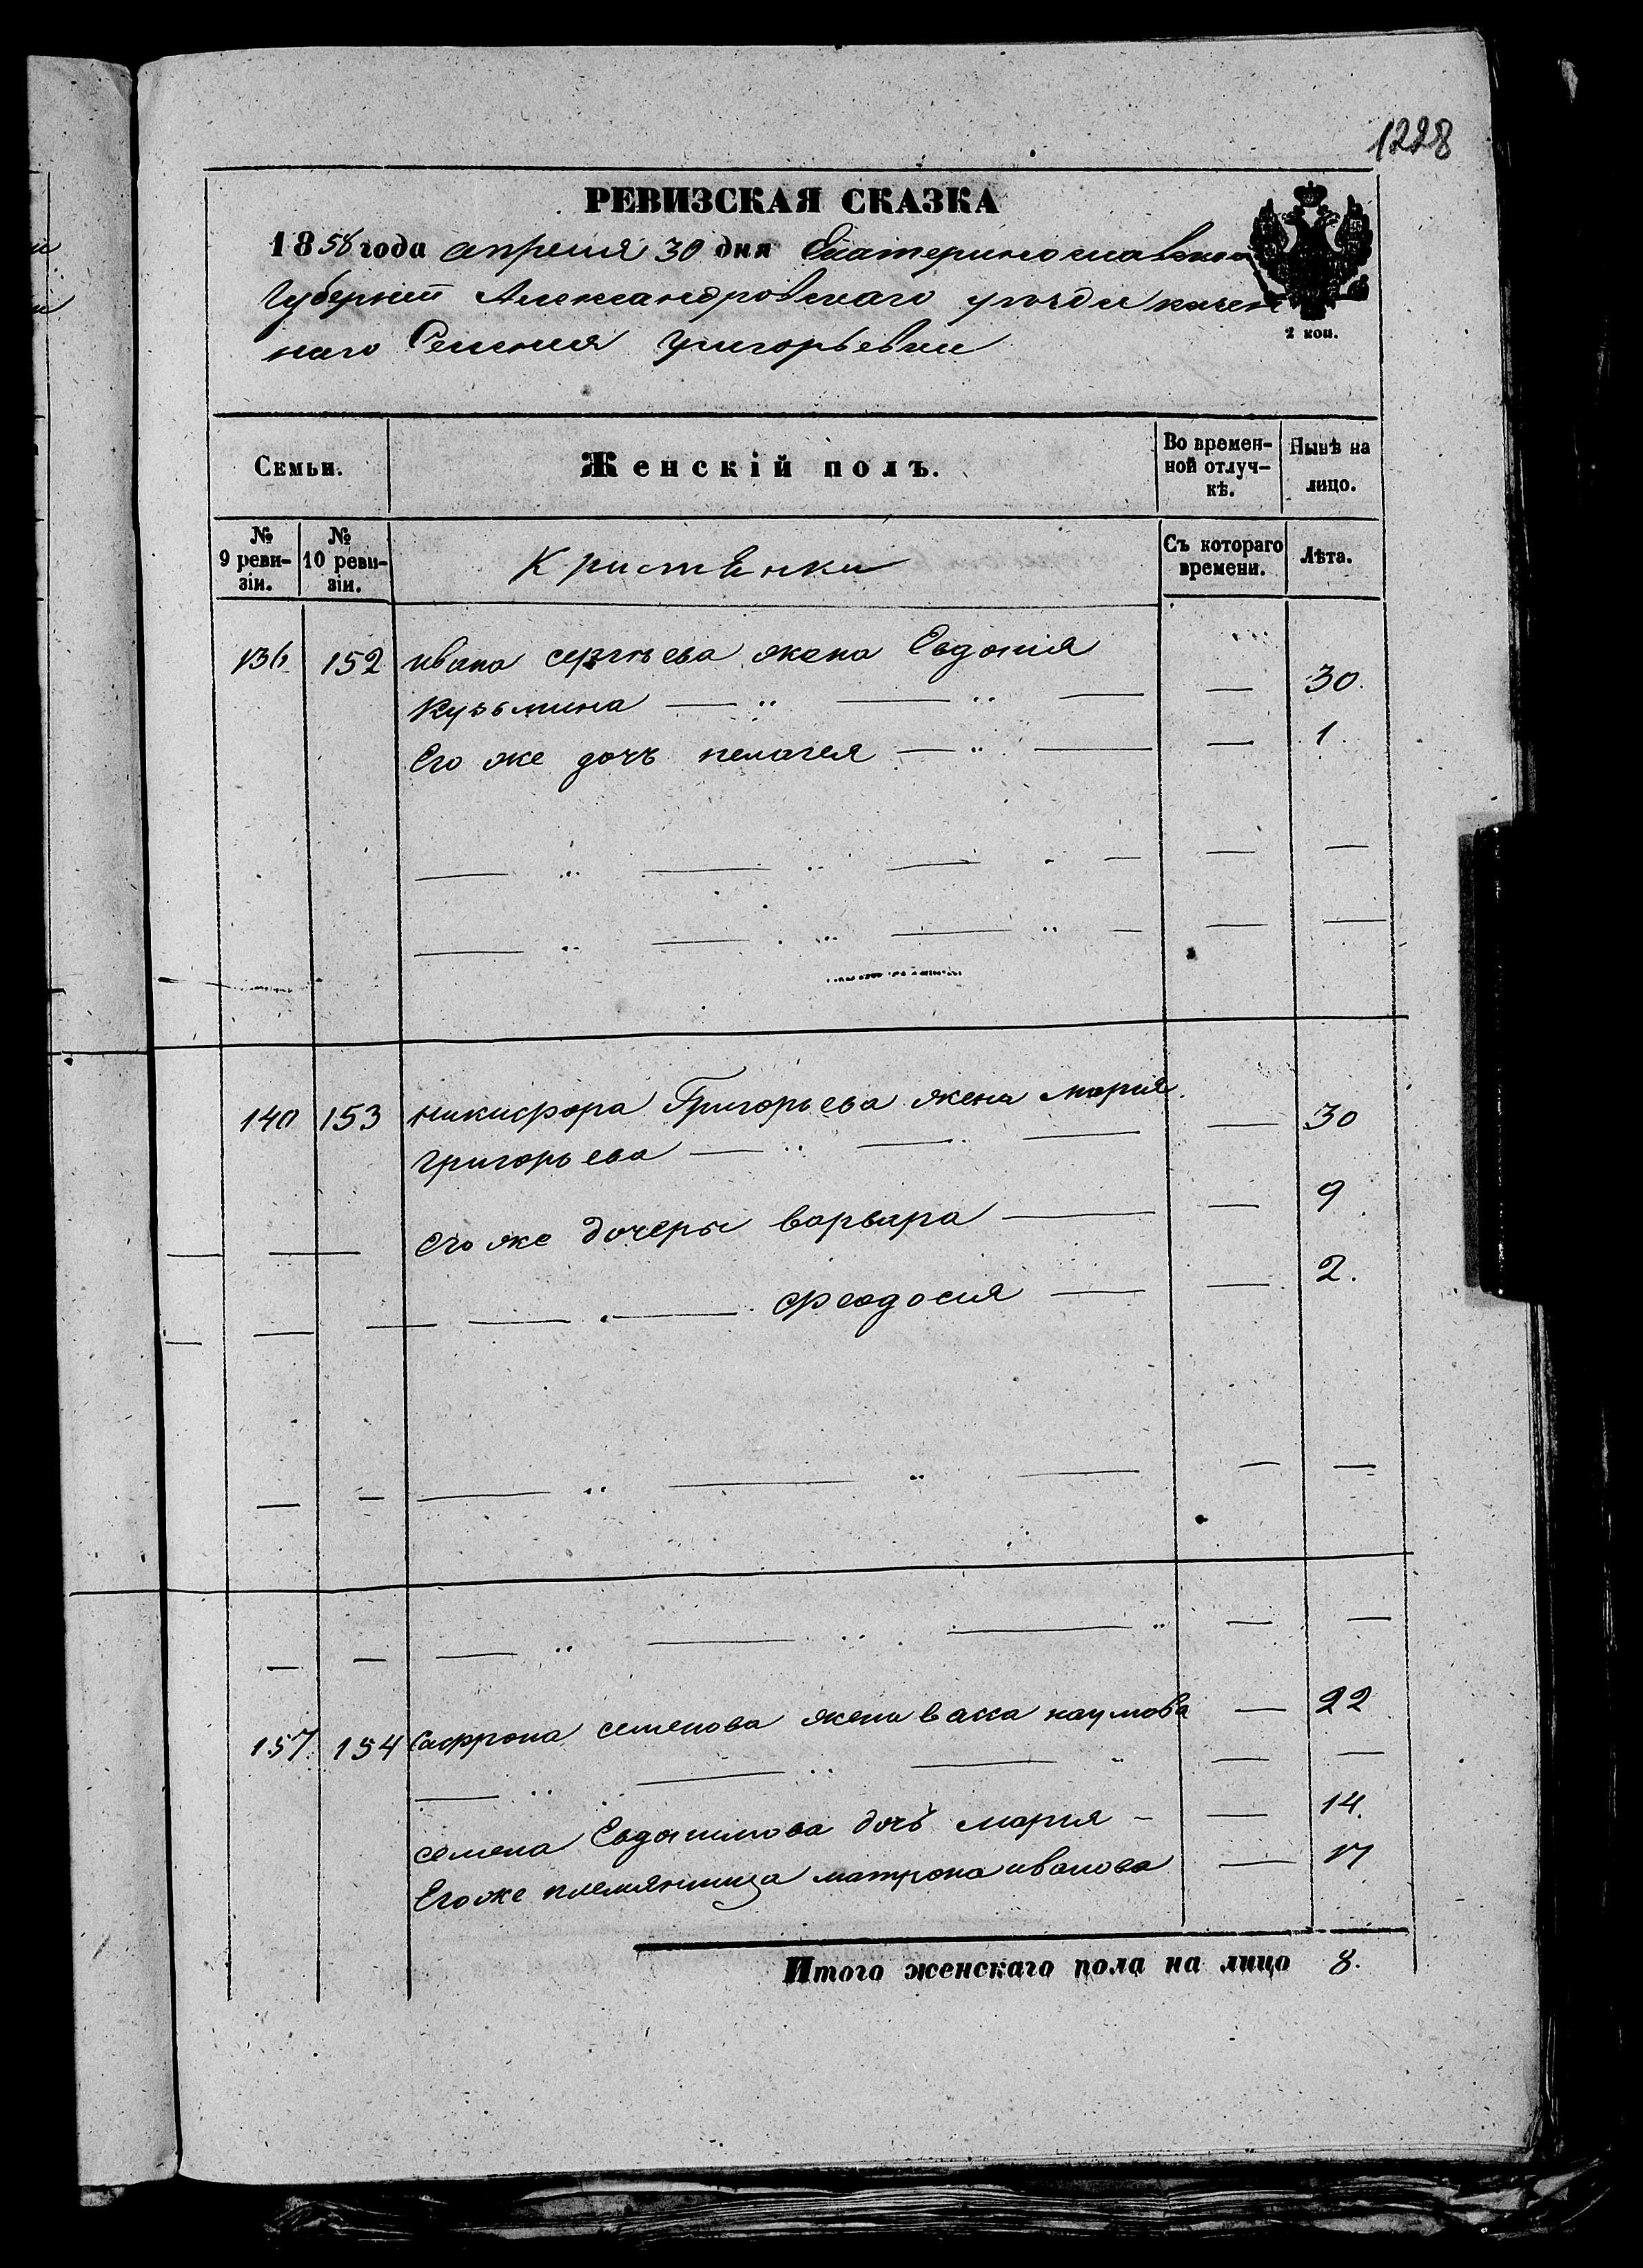 1228
РЕВИЗСКАЯ СКАЗКА
1858 года апреля 30 дня Екатеринославской
Губерніи Александровскаго уезда казен
наго Селения Григорьевки
2 коп.
Семьи.
Женскій полъ.
Во времен-
ной отлуч-
кѣ.
Нынѣ на
лицо.
№
9 реви-
зіи.
№
10 реви-
зіи.
Кристянки
Съ котораго
времени.
Лѣта.
136 152 ивана сергѣева жена Евдокія
Кузьмина — — — — 30.
Его же дочь пелагея — — — 1.
140 153 никифора Григорьева жена мария
григорьева — — — — 30
его же дочеры варвара — — 9
— — — феодосия — — 2.
157 154 Сафрона семенова жена васа наумова — 22
семена Евдокимова дочь мария — — 14.
Его же племянница матрона иванова — 17
Итого женскаго пола на лицо 8.